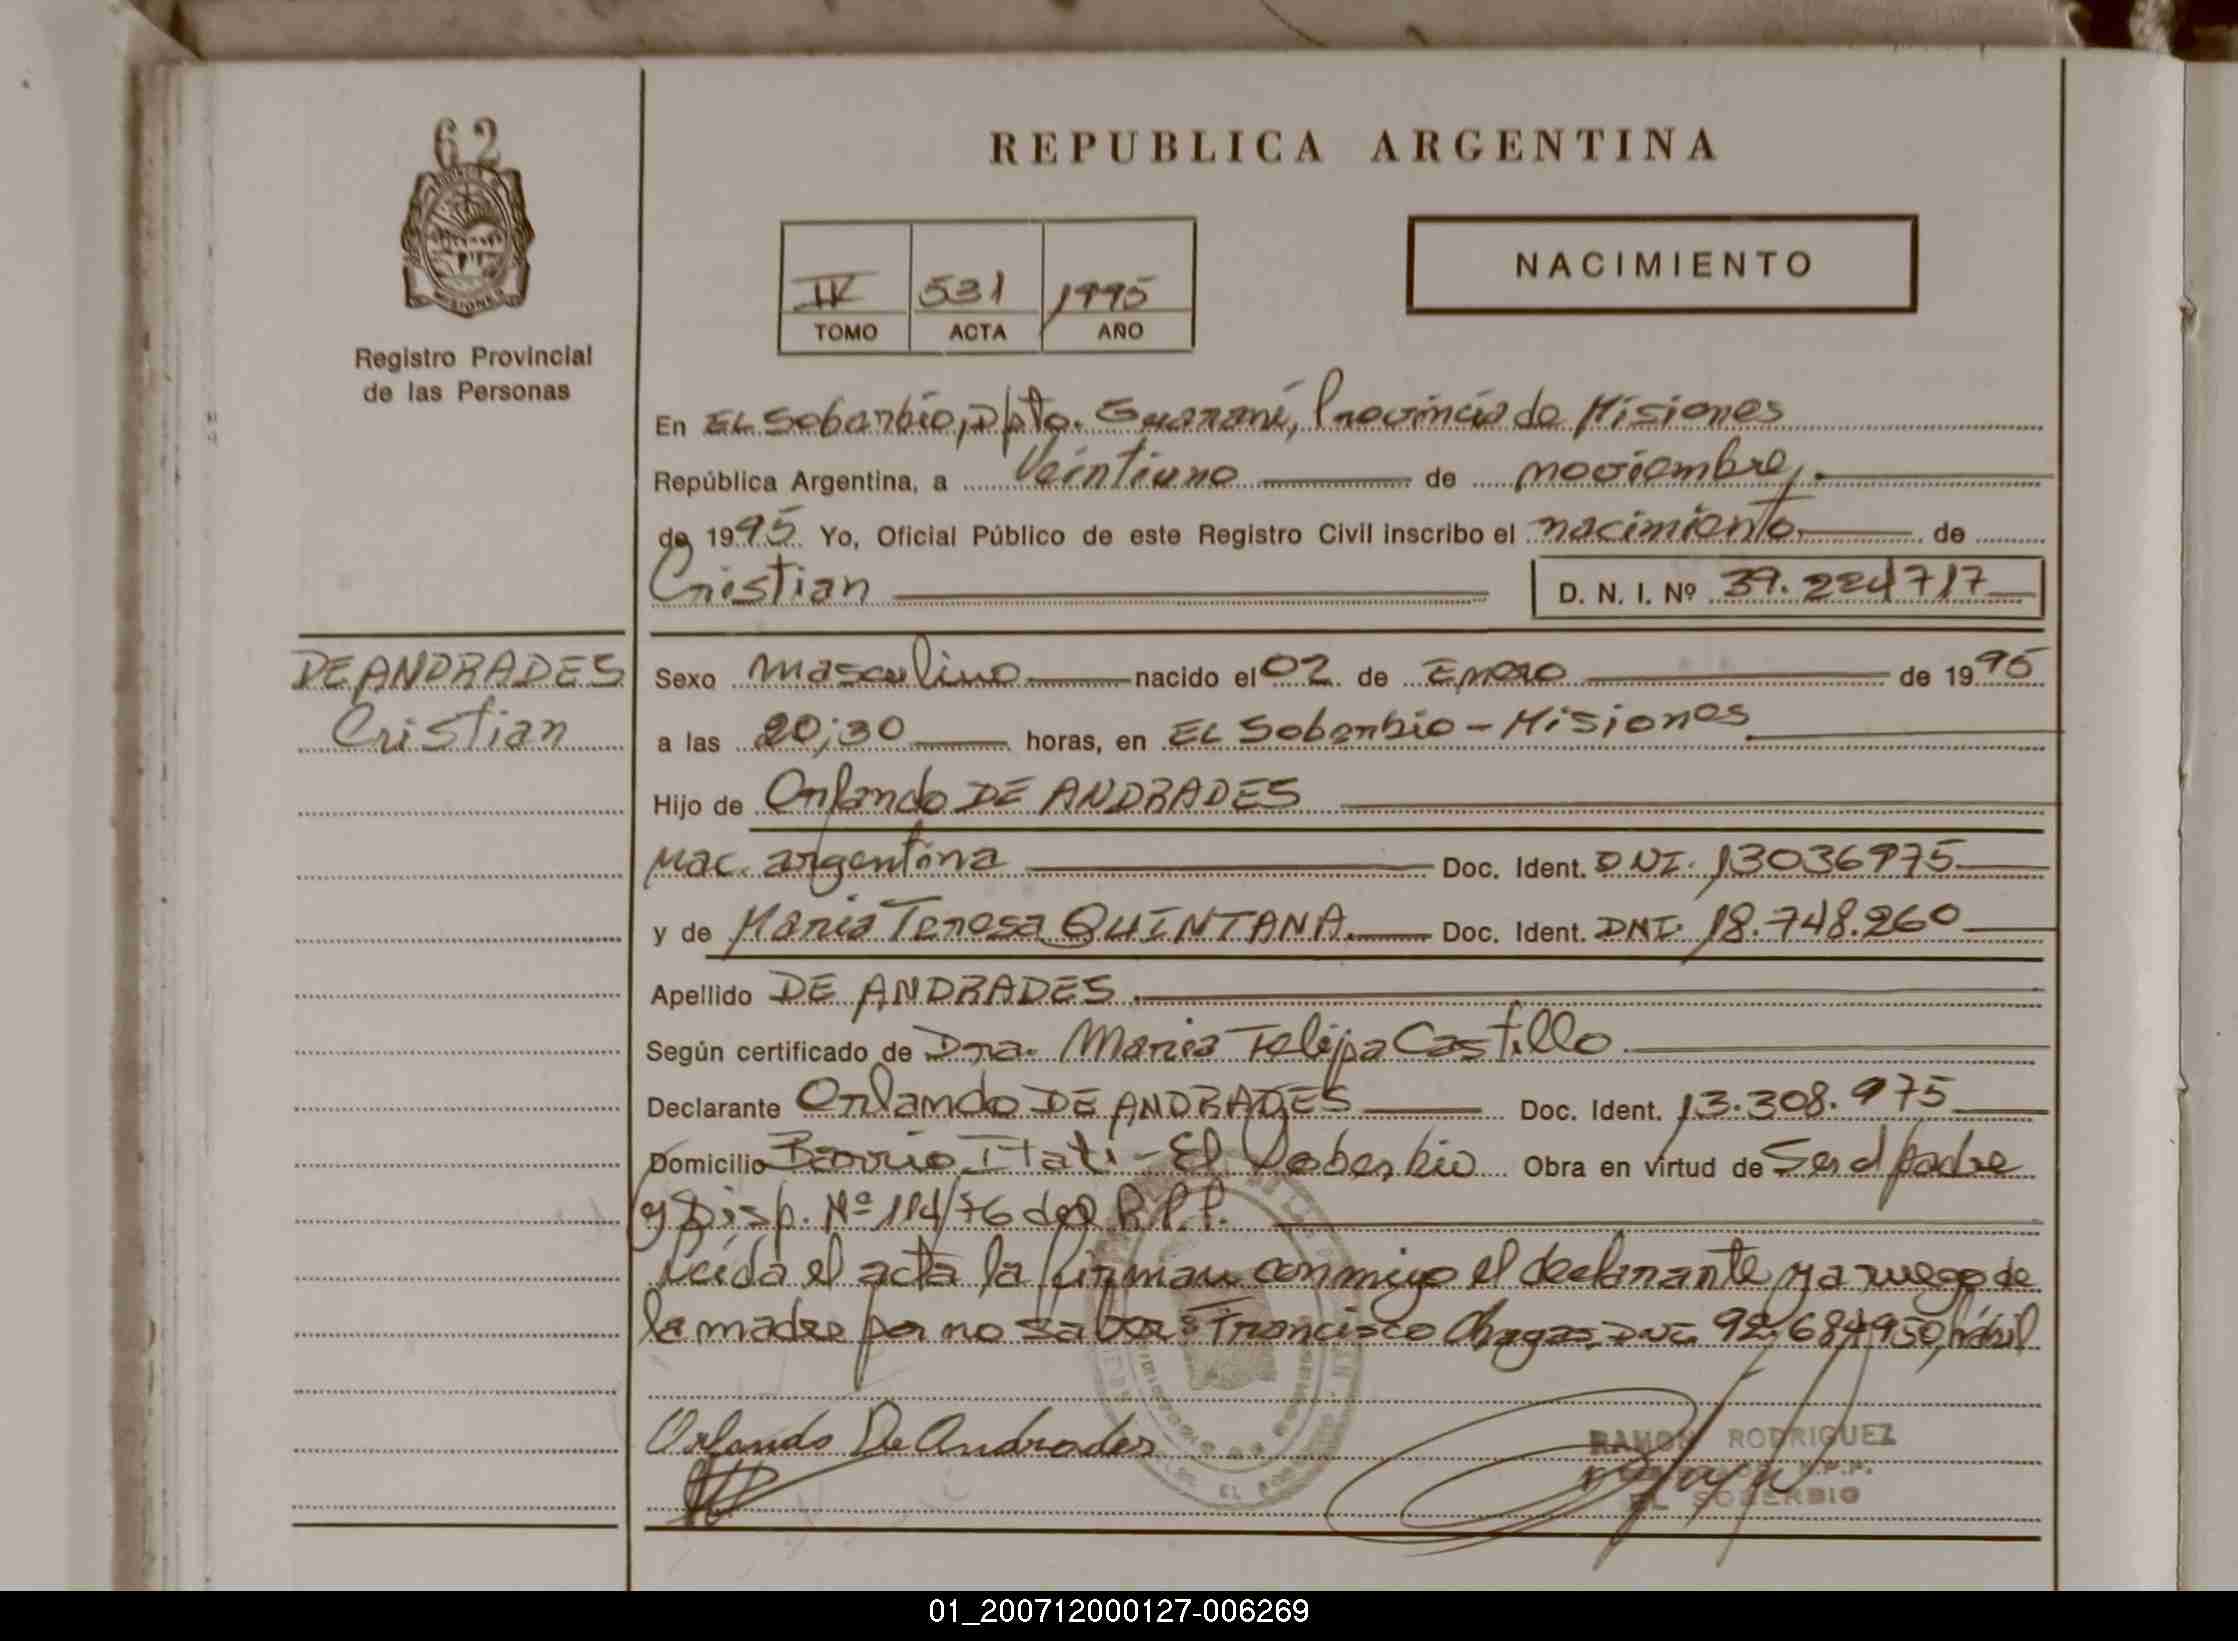 62
REPUBLICA ARGENTINA
MISIONES
Registro Provincial
de las Personas
IV 531 1995
TOMO ACTA AÑO
NACIMIENTO
En EL Soberbio, Dpto. Guaraní, Provincia de Misiones
República Argentina, a Veintiuno de noviembre,
de 1995 Yo, Oficial Público de este Registro Civil inscribo el nacimiento de
Cristian D. N. I. Nº 39.224717
DE ANDRADES
Cristian
Sexo masculino nacido el 02 de Enero de 1995
a las 20;30 horas, en EL Soberbio - Misiones
Hijo de Orlando DE ANDRADES
Nac. argentina Doc. Ident. DNI. 13036975
y de Maria Teresa QUINTANA. Doc. Ident. DNI. 18.748.260
Apellido DE ANDRADES
Según certificado de Dra. Maria Felipa Castillo
Declarante Orlando DE ANDRADES Doc. Ident. 13.308.975
Domicilio Barrio Itati - El Soberbio Obra en virtud de Ser el padre
y Disp. Nº 114/76 del R.P.P.
Leída el acta la firman conmigo el declarante y a ruego de
la madre por no saber: Francisco Chagas, DNI. 92,684950, hábil
Orlando De Andrades
RAMON RODRIGUEZ
R.P.P.
EL SOBERBIO
01_200712000127-006269